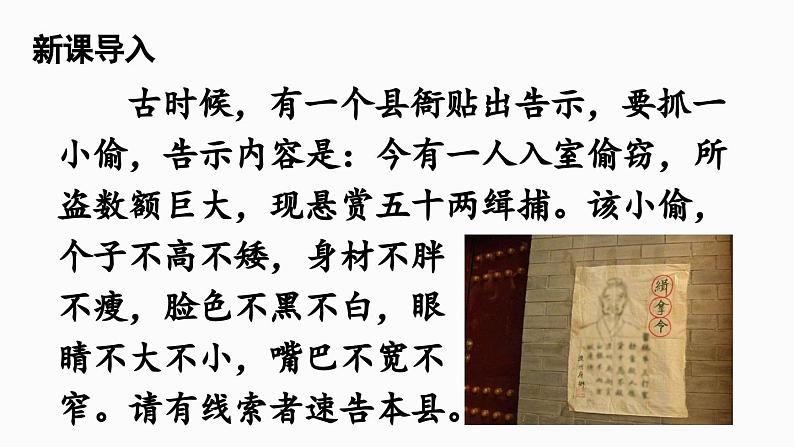 新课导入
古时候，有一个县衙贴出告示，要抓一
小偷，告示内容是：今有一人入室偷窃，所
盗数额巨大，现悬赏五十两缉捕。该小偷，
个子不高不矮，身材不胖
不瘦，脸色不黑不白，眼
睛不大不小，嘴巴不宽不
窄。请有线索者速告本县。
緝拿令